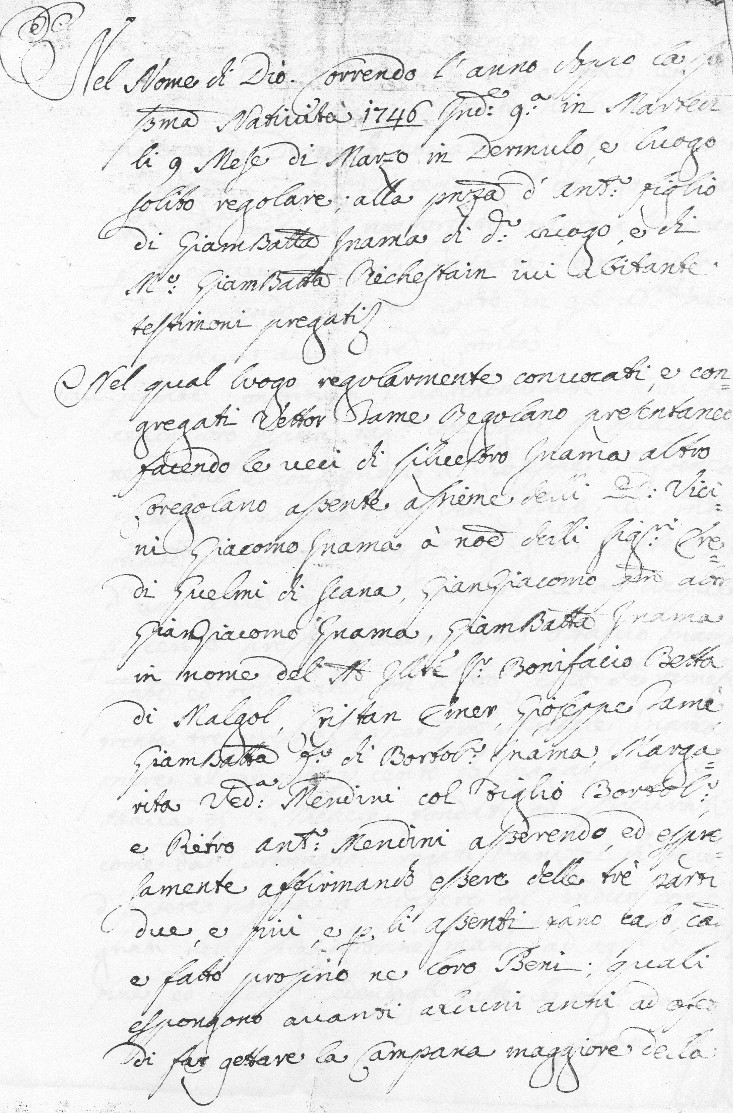 Nel Nome di Dio. Correndo l'anno doppo la
Sma Natività 1746 Ind.e 9.a in Martedì
li 9 Mese di Marzo in Dermulo, e luogo
solito regolare; alla pnza d'Ant.o figlio
di GiamBatta Inama di d.o luogo, e di
M.o GiamBatta Richestain ivi abitante
testimoni pregati
Nel qual luogo regolarmente convocati, e con=
gregati Vettor Tame Regolano presentaneo
facendo le veci di Silvestro Inama altro
Regolano assente assieme delli Vici=
ni Giacomo Inama à noe delli Sig.ri Ere=
di Guelmi di Scana, GianGiacomo
GianGiacomo Inama, GiamBatta Inama
in nome del Illre S.r Bonifacio Betta
di Malgol, Cristan Einer, Gioseppe Tame
GiamBatta f.o di Bortol.o Inama, Marga=
rita Ved.a Mendini col figlio Bortol.o,
e Pietro Ant.o Mendini asserendo, ed espre=
samente affirmando essere delle trè parti
due, e più, e p li assenti
e fatto proprio ne loro Beni; quali
espongono avanti alcuni anni ad
di far gettare la Campana maggiore della